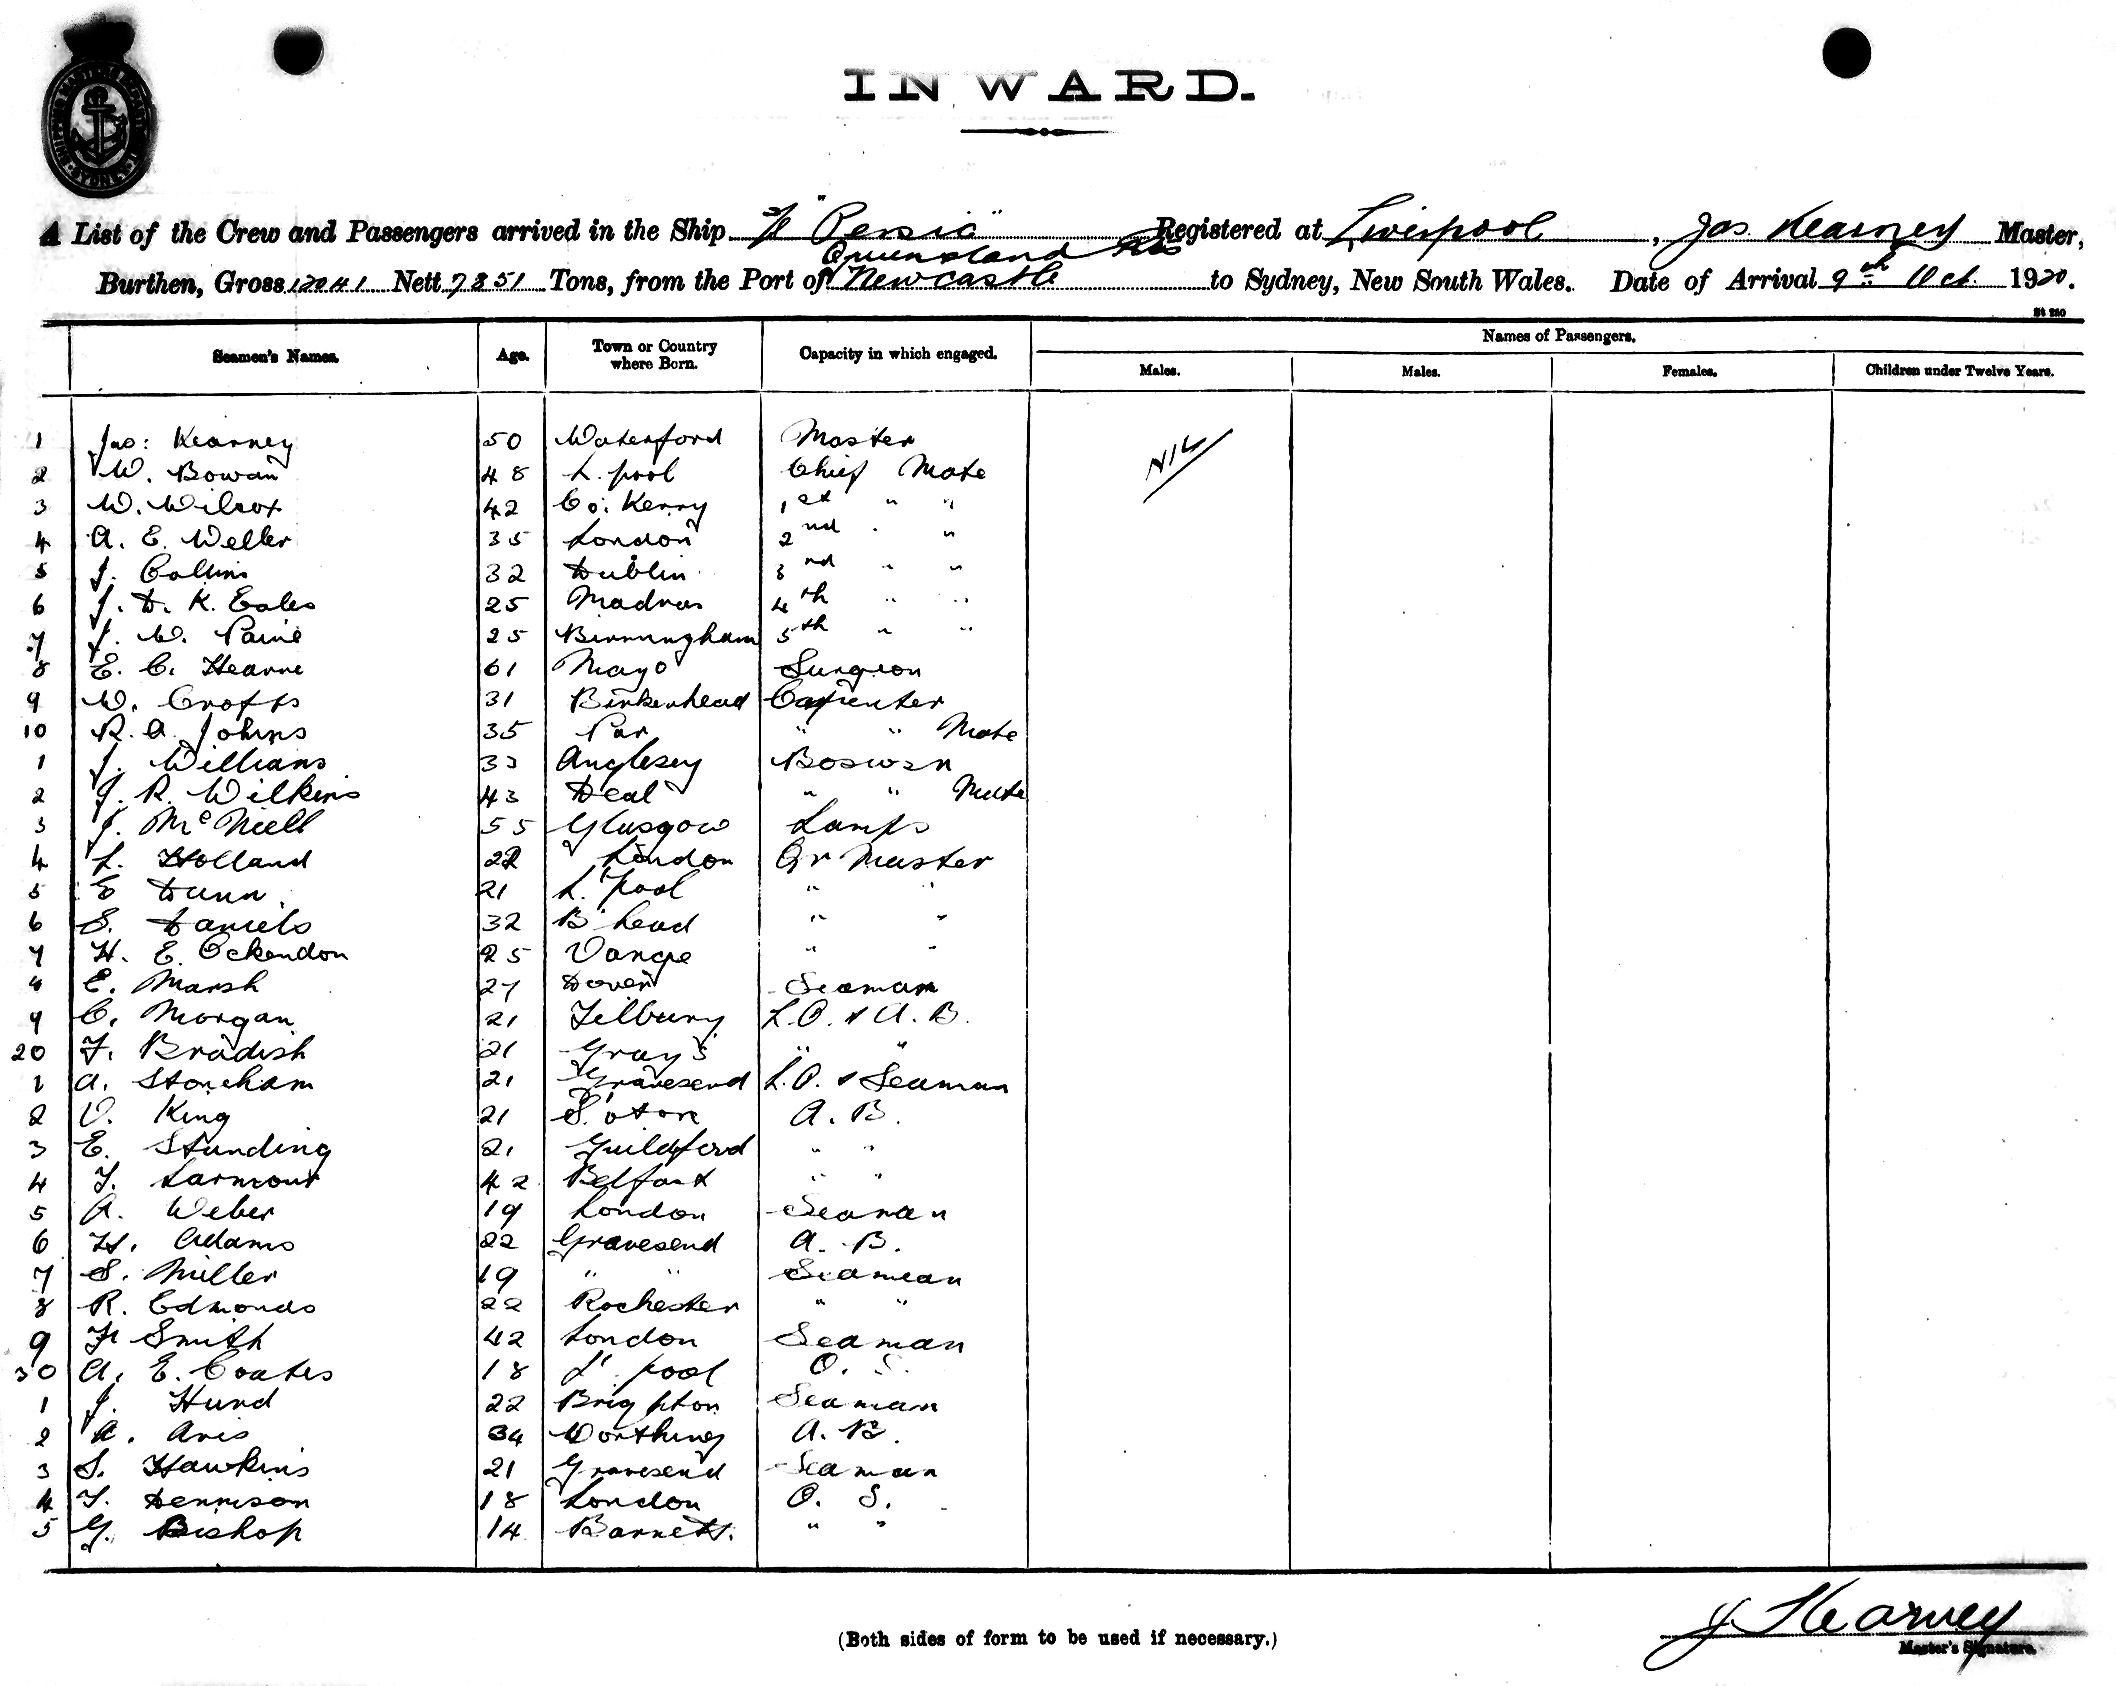 INWARD.
A List of the Crew and Passengers arrived in the Ship "Persic" Registered at Liverpool, Jas Kearney Master,
Queensland
Burthen, Gross 12041 Nett 7851 Tons, from the Port of Newcastle to Sydney, New South Wales. Date of Arrival 9th Oct. 1920.
Seamen's Names. Age. Town or Country where Born. Capacity in which engaged. Names of Passengers.
Males. Males. Females. Children under Twelve Years.
1 Jas: Kearney 50 Waterford Master NIL
2 W. Bowan 48 L. pool Chief Mate
3 W. Wilcox 42 Co: Kerry 1st " "
4 A. E. Weller 35 London 2nd " "
5 J. Collins 32 Dublin 3rd " "
6 J. D. K. Eales 25 Madras 4th " "
7 J. W. Paine 25 Birmingham 5th " "
8 E. C. Hearne 61 Mayo Surgeon
9 W. Crofts 31 Birkenhead Carpenter
10 R. A. Johns 35 Par " " Mate
1 J. Williams 33 Anglesey Boswan
2 J. R. Wilkins 43 Deal " " Mate
3 J. McNiell 55 Glasgow Lamps
4 L. Holland 22 London Qr Master
5 E Dunn 21 L'pool " "
6 S. Daniels 32 B'head " "
7 H. E. Ockendon 25 Vange " "
8 E. Marsh 27 Dover Seaman
9 C. Morgan 21 Tilbury L.O. & A.B.
20 F. Bradish 21 Grays " "
1 A. Stoneham 21 Gravesend L.O. & Seaman
2 V. King 21 S'oton A.B.
3 E. Standing 21 Guildford " "
4 T. Larmour 42 Belfast " "
5 A. Weber 19 London Seaman
6 H. Adams 22 Gravesend A.B.
7 S. Miller 19 " " Seamean
8 R. Edmonds 22 Rochester " "
9 F. Smith 42 London Seaman
30 A. E. Coates 18 L'pool O.S.
1 J. Hund 22 Brighton Seaman
2 A. Avis 34 Worthing A.B.
3 S. Hawkins 21 Gravesend Seaman
4 T. Dennison 18 London O. S.
5 G. Bishop 14 Barnett. " "
J Kearney
(Both sides of form to be used if necessary.)
Master's Signature.